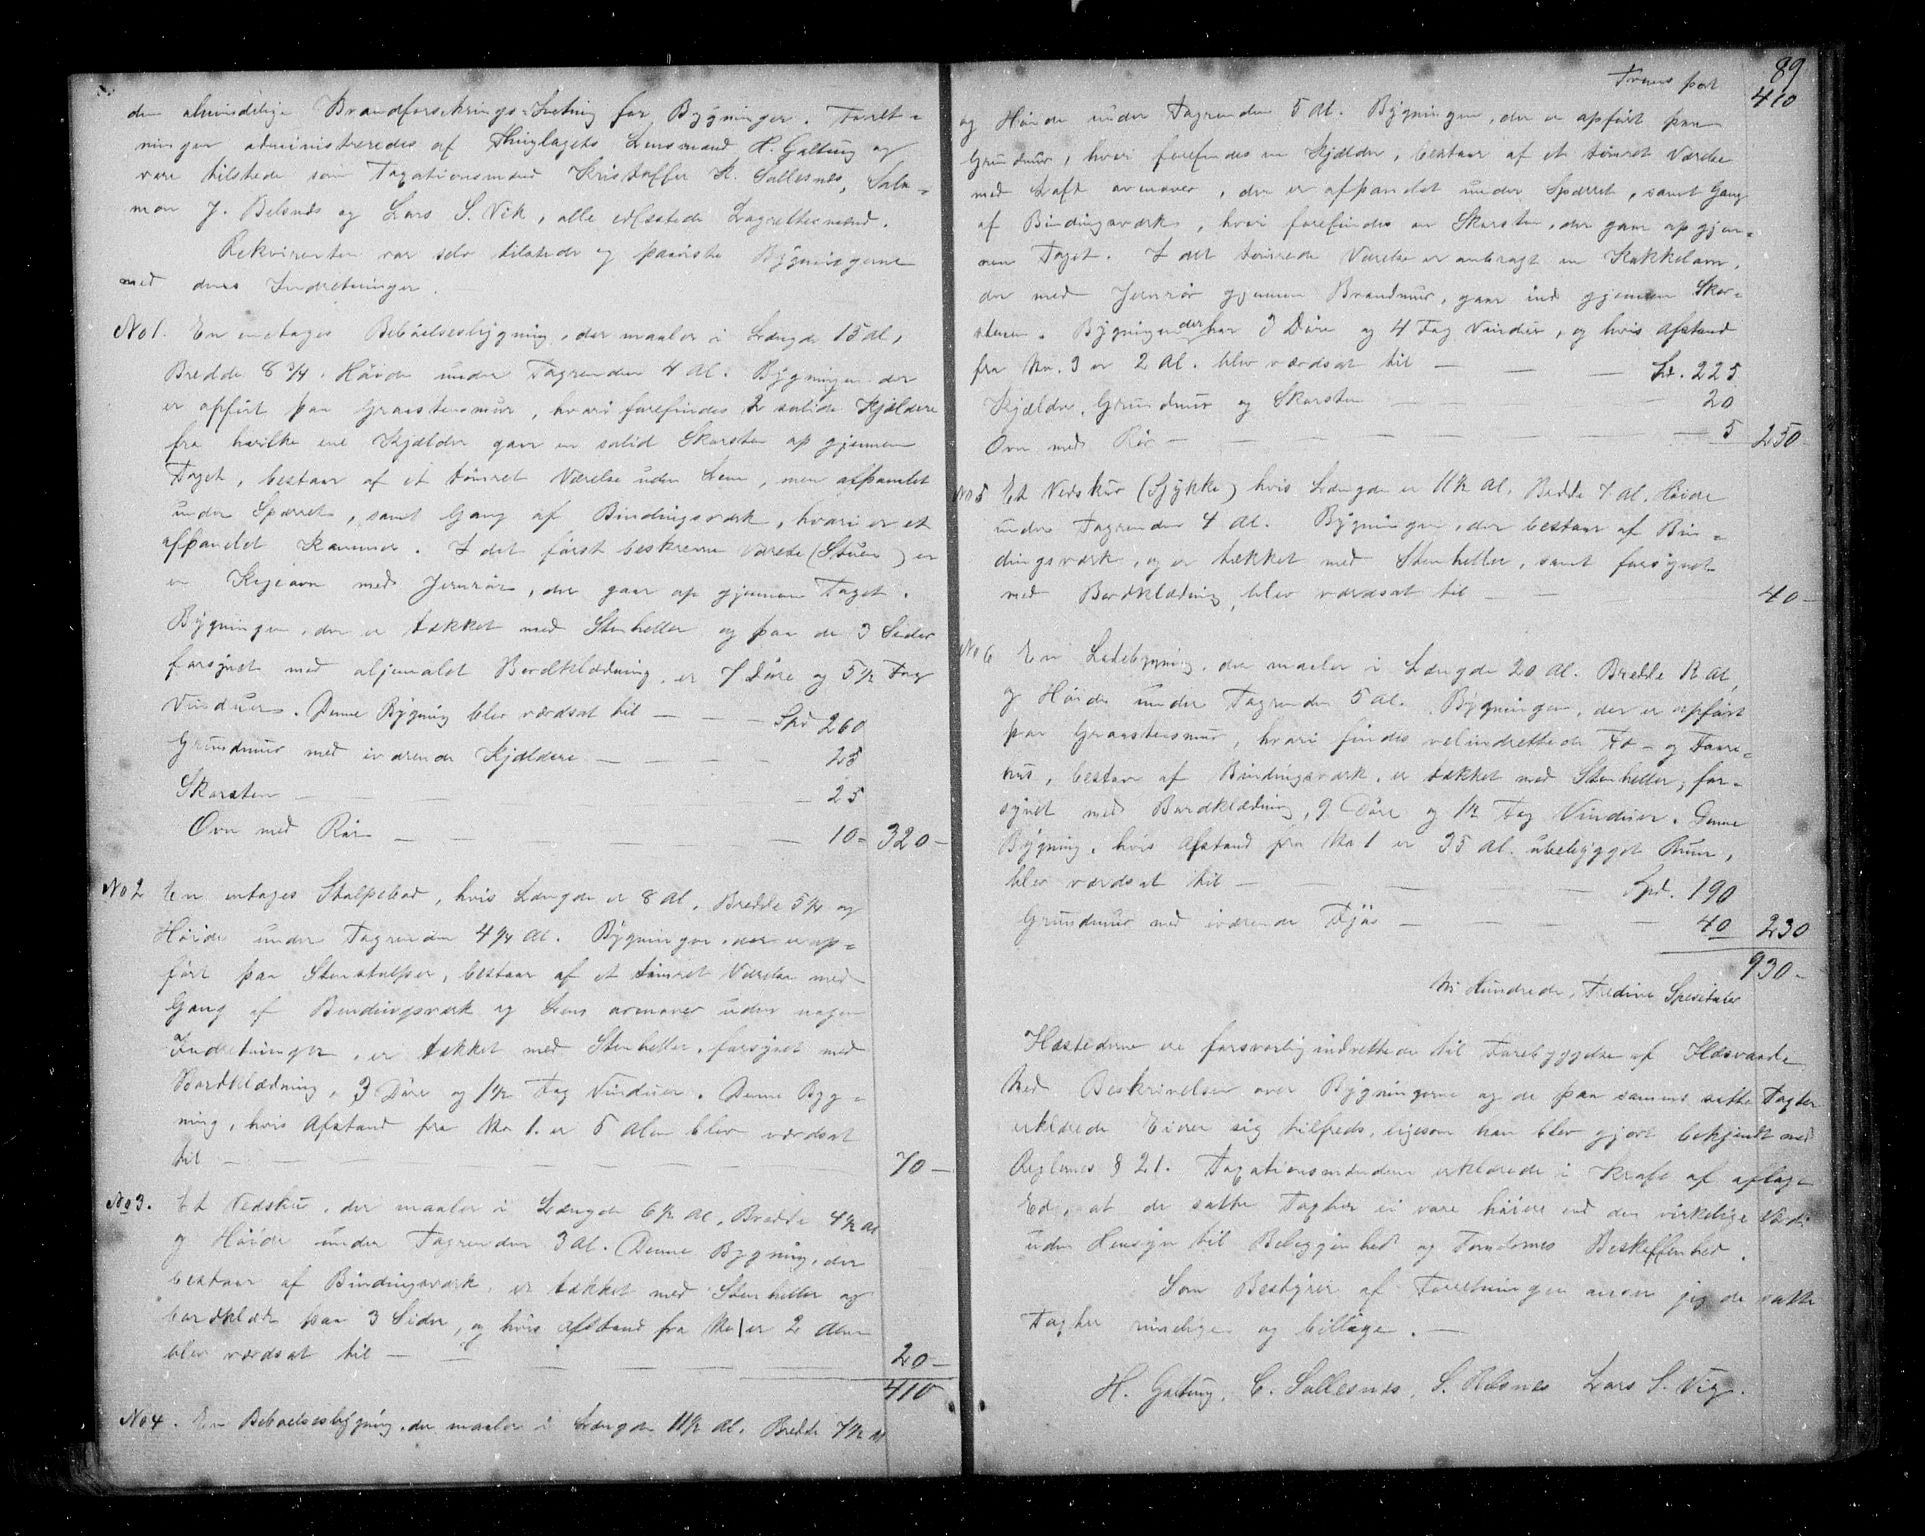 den almindelige Brandforsikrings-Indretning for Bygninger. Forret-
ningen administreredes af Thinglagets Lensmand H. Galtung og
vare tilstede som Taxationsmænd Kristoffer K. Sallesnes, Salo-
mon J. Belsnes og Lars S. Vik, alle edfæstede Lagrettesmænd.
Rekvirenten var selv tilstede og paaviste Bygningerne
med deres Indretninger.
No 1. En enetages Beboelsesbygning, der maaler i Længde 15 Al,
Bredde 8 3/4. Høide under Tagrenden 4 Al. Bygningen der
er opført paa Graastensmur, hvori forefindes 2 solide Kjældere
fra hvilke ene Kjælder gaar en solid Skorsten op gjennem
Taget, bestaar af et tømret Værelse uden Lem, men afpanelet
under Sperret, samt Gang af Bindingsværk, hvori er et
afpanelet Kammer. I det først beskrevne Værelse (Stuen) er
en Kogeovn med Jernrør, der gaar op gjennem Taget.
Bygningen, der er tækket med Stenheller og paa de 3 Sider
forsynet med oljemalet Bordklædning, er 7 Døre og 5 1/2 Fag
Vinduer. Denne Bygning blev værdsat til — — — Spd 260
Grundmur med iværende Kjældere — — — — 25
Skorsten — — — — 25
Ovn med Rør — — — — 10 - 320 -
No 2 En entages Stolpebod, hvis Længde er 8 Al, Bredde 5 1/4 og
Høide under Tagrenden 4 1/4 Al. Bygningen, der er op-
ført paa Stenstolper, bestaar af et tømret Værelse med
Gang af Bindingsværk og Lem ovenover uden nogen
Indretninger, er tækket med Stenheller, forsynet med
Bordklædning, 3 Døre og 1 1/2 Fag Vinduer. Denne Byg-
ning, hvis Afstand fra No 1. er 5 Alen blev værdsat
til — — — — — — 70 —
No 3. Et Vedskur, der maaler i Længde 6 1/2 Al, Bredde 4 1/2 Al
og Høide under Tagrenden 3 Al. Denne Bygning, der
bestaar af Bindingsværk, er tækket med Stenheller og
bordklædt paa 3 Sider, og hvis afstand fra No 1 er 2 Alen
blev værdsat til — — — — 20 —
410
No 4. En Beboelsesbygning, der maaler i Længde 11 1/2 Al. Bredde 7 1/2 Al
89
Transport 410
og Høide under Tagrenden 5 Al. Bygningen, der er opført paa
Grundmur, hvori forefindes en Kjælder, bestaar af et tømret Værelse
med Loft ovenover, der er afpanelet under Sperret, samt Gang
af Bindingsværk, hvori forefindes en Skorsten, der gaar op gjen-
nem Taget. I det tømrede Værelse er anbragt en Kakkelovn,
der med Jernrør gjennem Brandmur, gaar ind gjennem Skor-
stenen. Bygningen der har 3 Døre og 4 Fag Vinduer, og hvis Afstand
fra No. 3 er 2 Al. blev værdsat til — — — Spd. 225
Kjælder, Grundmur og Skorsten — — — 20
Ovn med Rør — — — — — 5 250 -
No 5 Et Vedskur (Skykke) hvis Længde er 11 1/2 Al. Bredde 7 Al. Høide
under Tagrenden 4 Al. Bygningen, der bestaar af Bin-
dingsværk, og er tækket med Stenheller, samt forsynet
med Bordklædning, blev værdsat til — — 40 -
No 6 En Ladebygning, der maaler i Længde 20 Al. Bredde 12 Al,
og Høide under Tagrenden 5 Al. Bygningen, der er opført
paa Graastensmur, hvori findes velindrettede Fæ- og Faare-
hus, bestaar af Bindingsværk, er tækket med Stenheller, for-
synet med Bordklædning, 9 Døre og 1 1/2 Fag Vinduer. Denne
Bygning, hvis Afstand fra No 1 er 35 Al. ubebygget Rum,
blev værdsat til — — — — Spd. 190
Grundmur med iværende Fjøs — — — 40 230
930 -
Ni Hundrede, Tredive Speciedaler
Ildstederne ere forsvarlig indrettede til Forebyggelse af Ildsvaade
Med Beskrivelsen over Bygningerne og de paa samme satte Taxter
erklærede Eieren sig tilfreds, ligesom han blev gjort bekjendt med
Reglernes § 21. Taxationsmændene erklærede i Kraft af aflagt
Ed, at de satte Taxter ei vare høiere end den virkelige Værdi
uden Hensyn til Beliggenhed og Tomternes Beskaffenhed.
Som Bestyrer af Forretningen anser jeg de satte
Taxter rimelige og billige. —
H. Galtung, C. Sallesnes, S. Belsnes Lars S. Vig.